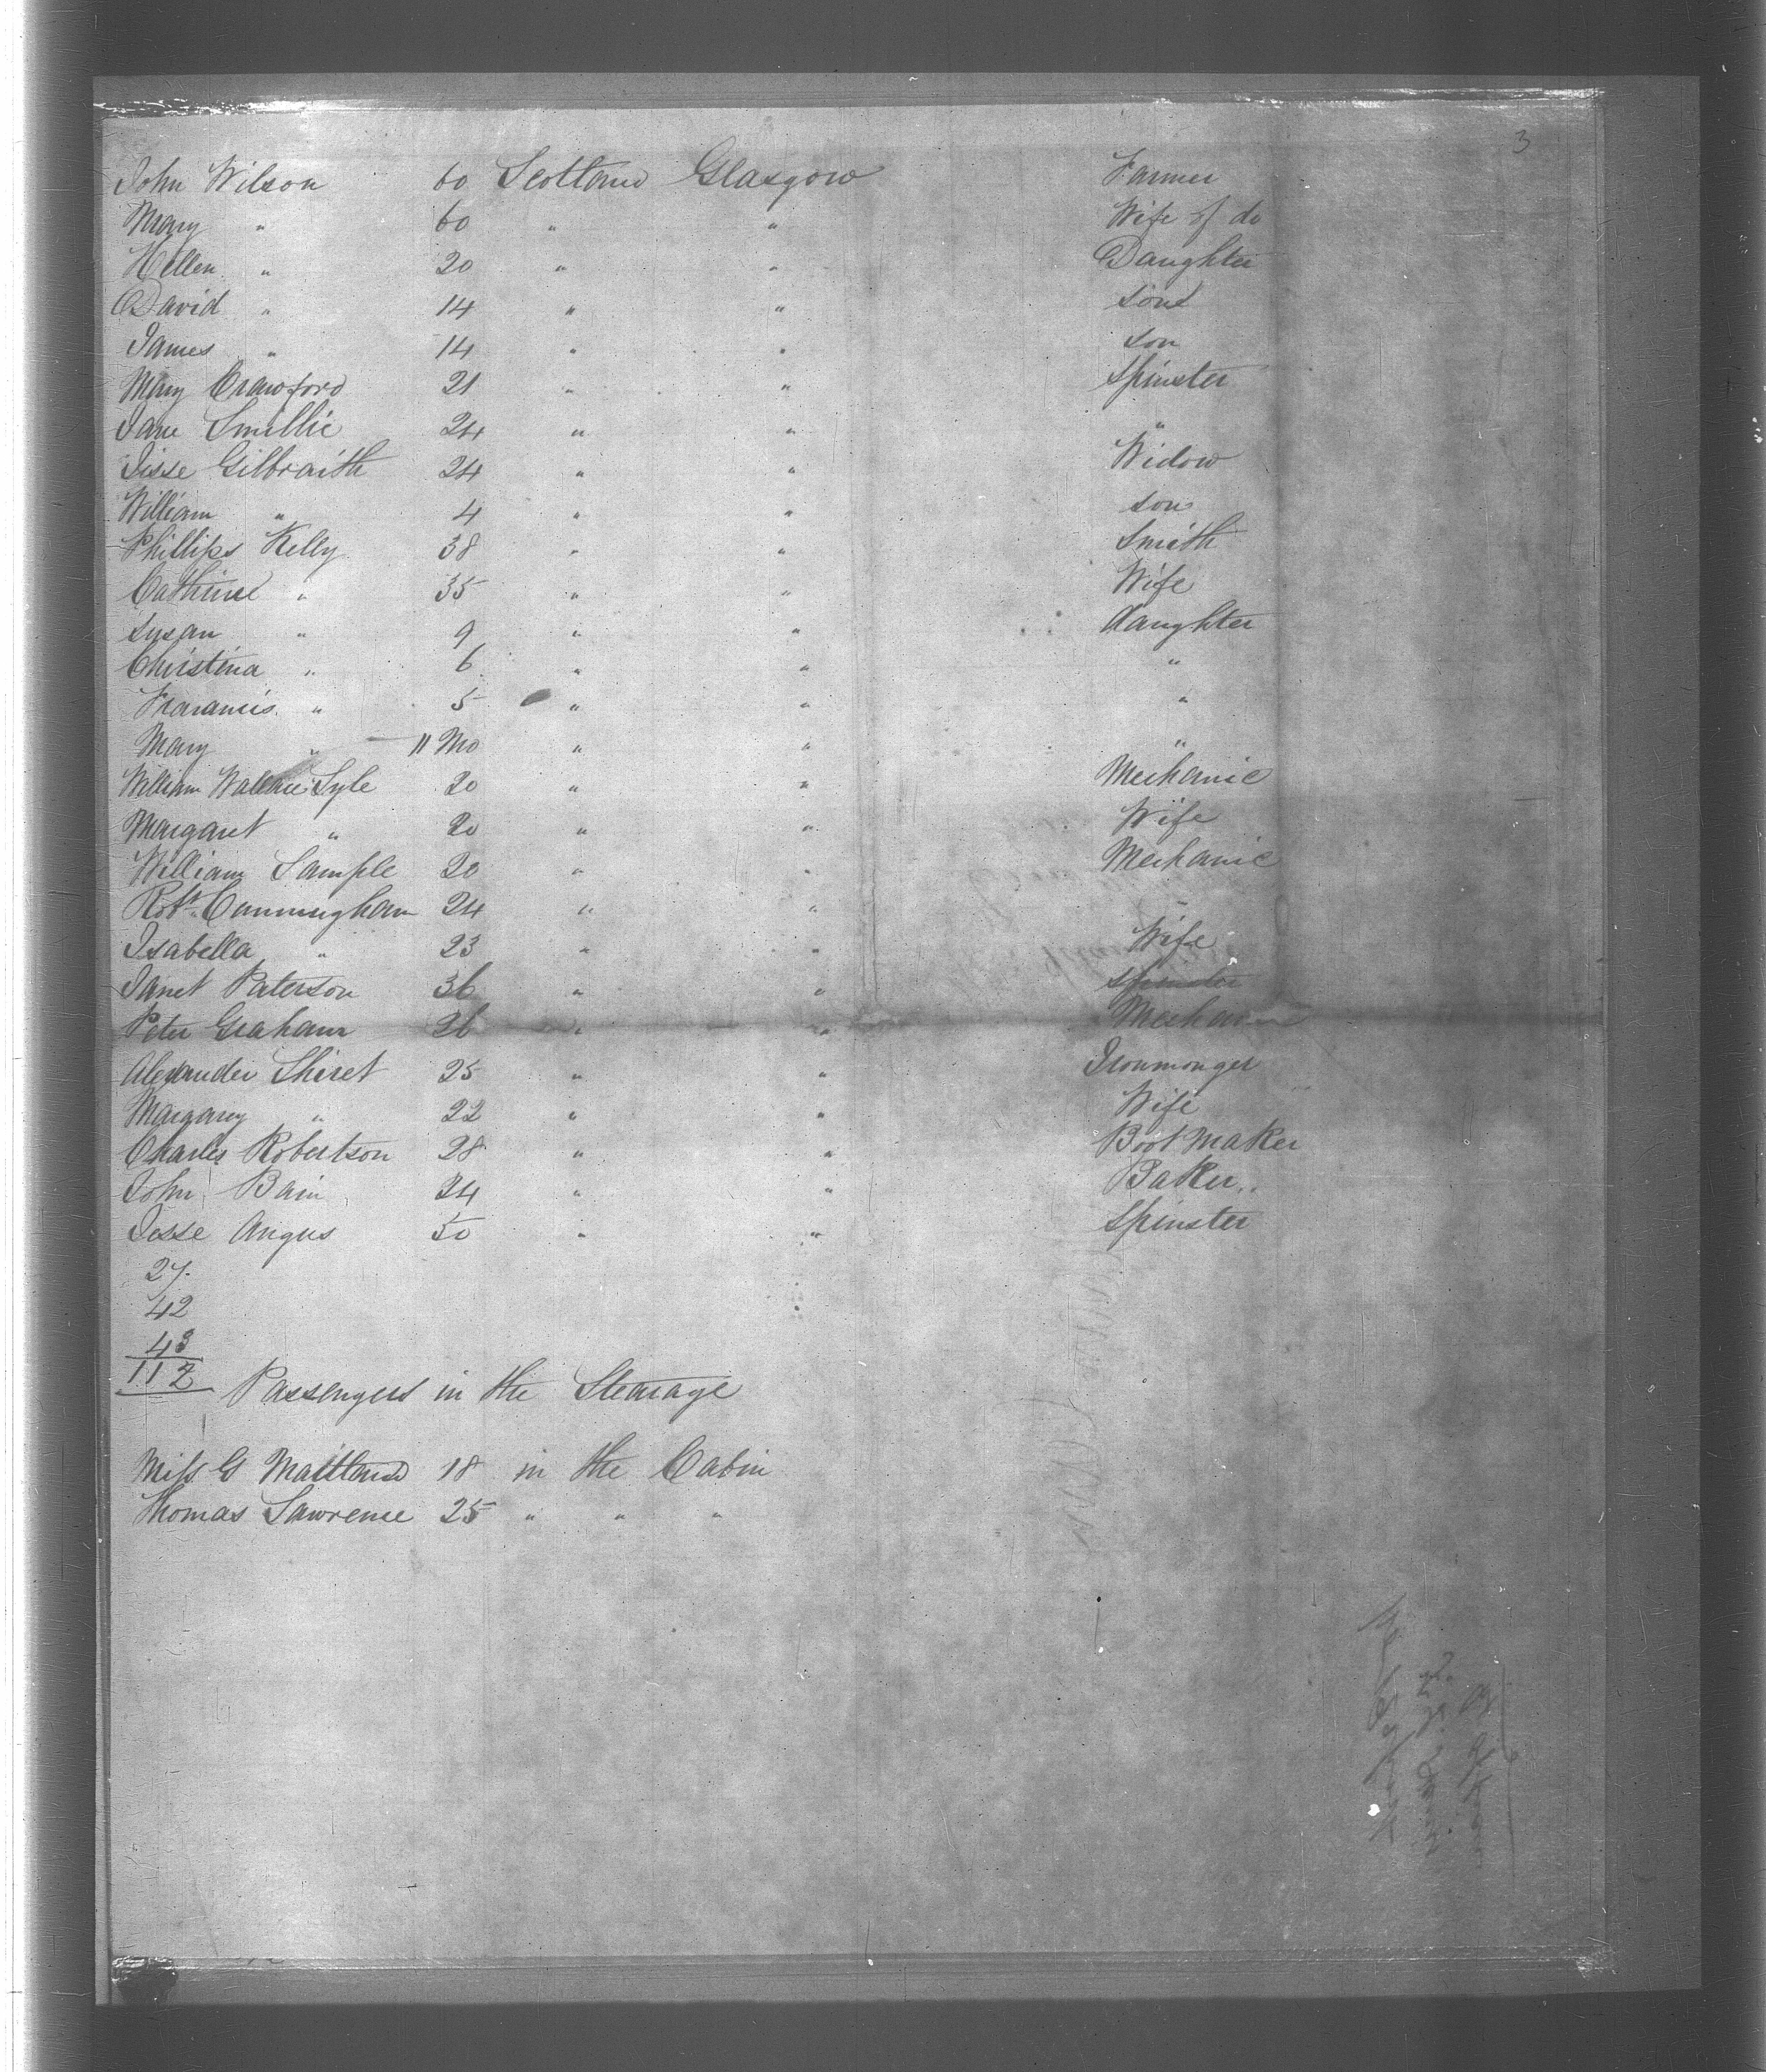 3
John Wilson 60 Scotland Glasgow Farmer
Mary " 60 " " Wife of do
Hellen " 20 " " Daughter
David " 14 " " sons
James " 14 " " son
Mary Crawford 21 " " Spinster
Jane Smillie 24 " " "
Jisse Gilbraith 24 " " Widow
William " 4 " " son
Phillips Kelly 38 " " Smith
Cathrine " 35 " " Wife
Susan " 9 " " daughter
Christina " 6 " " "
Frarancis " 5 " " "
Mary " 11 Mo " " "
William Wallace Lyle 20 " " Mechanic
Margaret " 20 " " Wife
William Sample 20 " " Mechanic
Robt. Cunningham 24 " " "
Isabella " 23 " " Wife
Janet Paterson 36 " " spinster
Peter Graham 26 " " Mechanic
Alexander Shiret 25 " " Ironmonger
Margary " 22 " " Wife
Charles Robertson 28 " " Boot Maker
John Bain 24 " " Baker
Jesse Angus 50 " " Spinster
27
42
43
112 Passengers in the Stearage
Miss G Maitland 18 in the Cabin
Thomas Lawrence 25 " " "